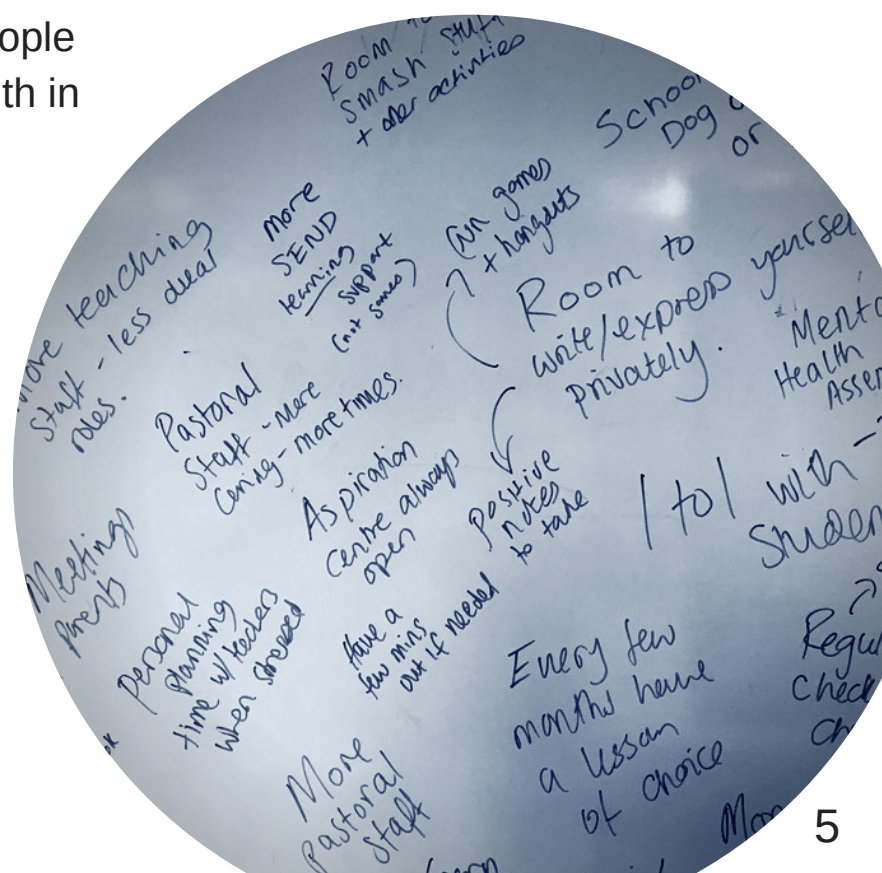 ople
th in
Room to
smash stuff
+ other activities
School
Dog
or
more
SEND
learning
support
(not same)
fun games
+ hangouts
More teaching
staff - less dual
roles.
Room to
write/express yoursel
privately.
Menta
Health
Assem
Pastoral
Staff - more
caring - more times.
Aspiration
centre always
open
positive
notes
to take
1 to 1 with -
Studen
Meetings
parents
personal
planning
time w/ teachers
when stressed
Have a
few mins
out if needed
Every few
months have
a lesson
of choice
Regu
Check
Ch
More
pastoral
staff
5